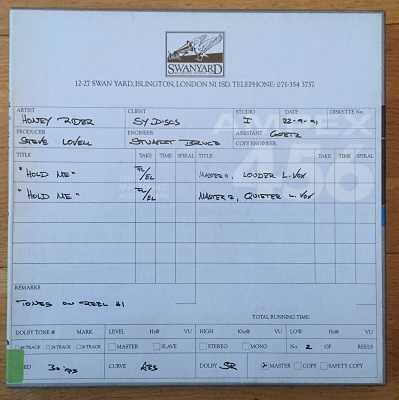 SWANYARD
12-27 SWAN YARD, ISLINGTON, LONDON N1 1SD. TELEPHONE: 071-354 3737.
ARTIST CLIENT STUDIO DATE DISKETTE No.
HONEY RIDER SY DISCS I 22-9-91
PRODUCER ENGINEER ASSISTANT GOETZ
STEVE LOVELL STUART BRUCE COPY ENGINEER
AMPEX
456
TITLE TAKE TIME SPIRAL TITLE TAKE TIME SPIRAL
"HOLD ME" FL/EL MASTER 1, LOUDER L.VOX
"HOLD ME" FL/EL MASTER 2, QUIETER L.VOX
REMARKS
TONES ON REEL #1
TOTAL RUNNING TIME:
DOLBY TONE @ MARK LEVEL Hz@ VU HIGH Khz@ VU LOW Hz@ VU
48 TRACK 24 TRACK 16 TRACK MASTER SLAVE STEREO MONO No. 2 OF REELS
30 ips CURVE AES DOLBY SR MASTER COPY SAFETY COPY